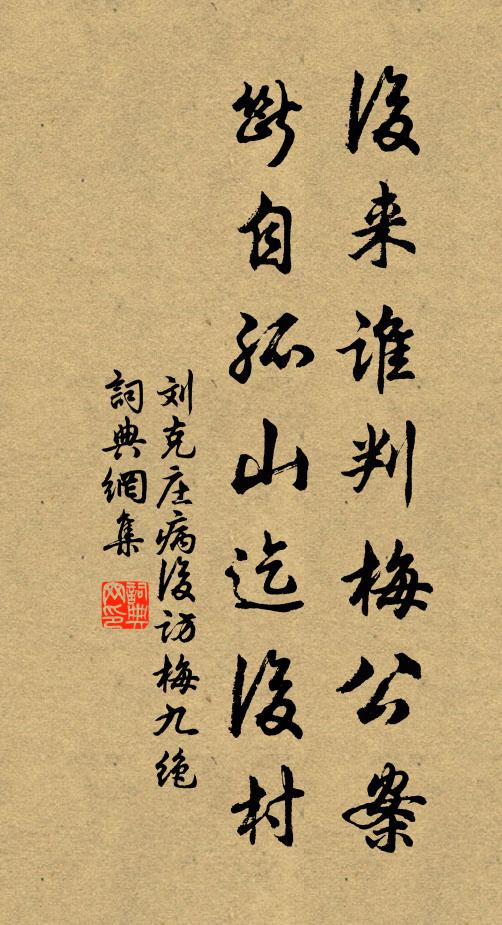 後来谁判梅公案
断自孤山迄後村
刘克庄病後访梅九绝
詞典網集
詞典網印